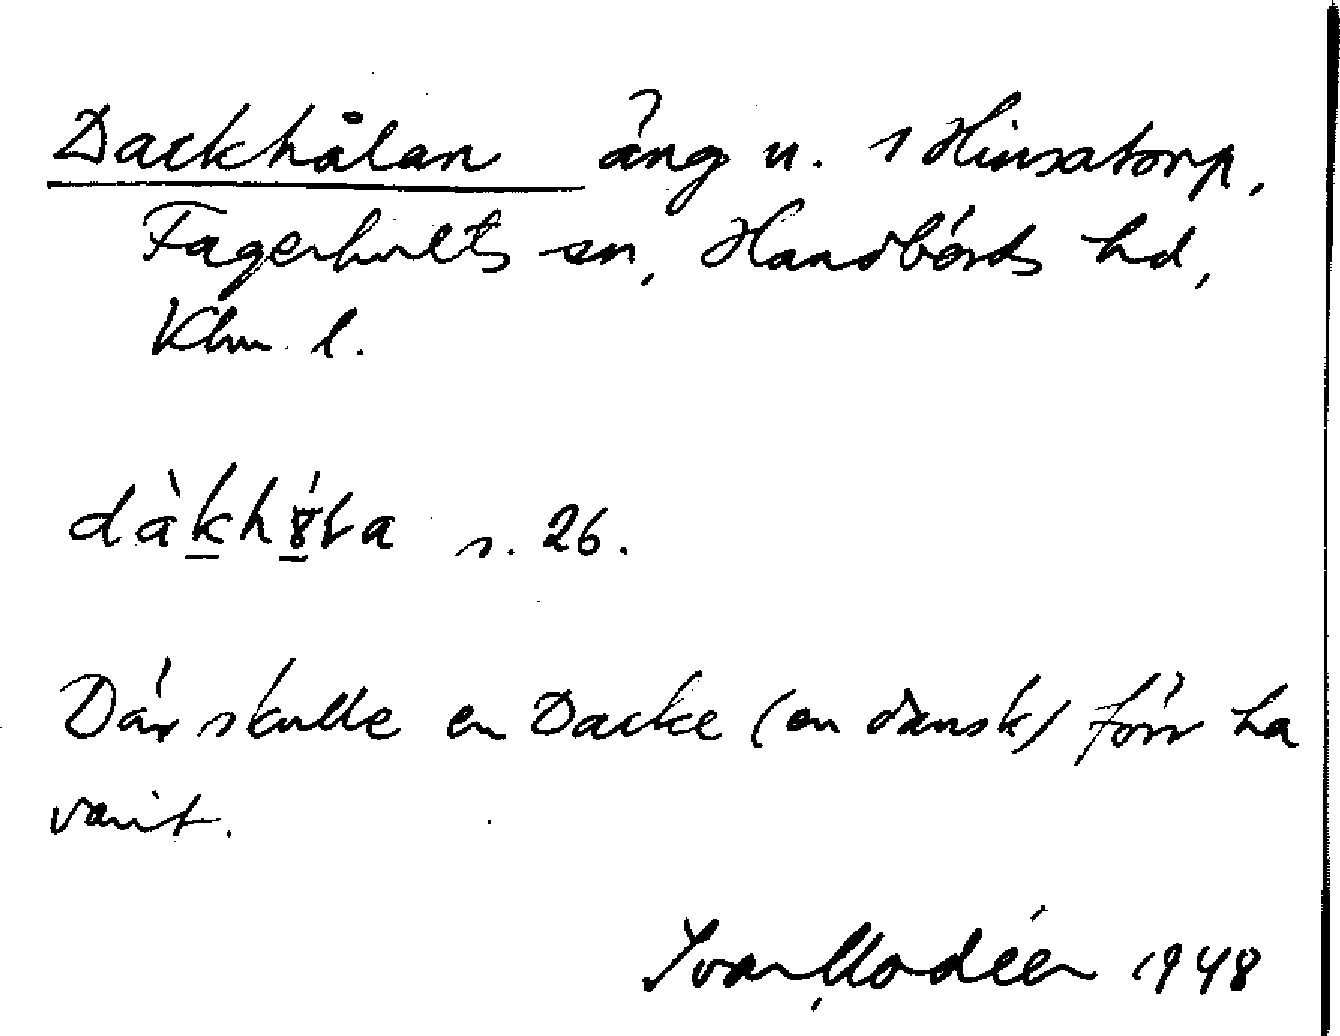 Dackhålan äng u. 1 Hinsatorp,
Fagerhults sn, Handbörds hd,
Klm l.
s. 26.
Där skulle en Dacke (en dansk) förr ha
varit.
Ivar Modéer 1948